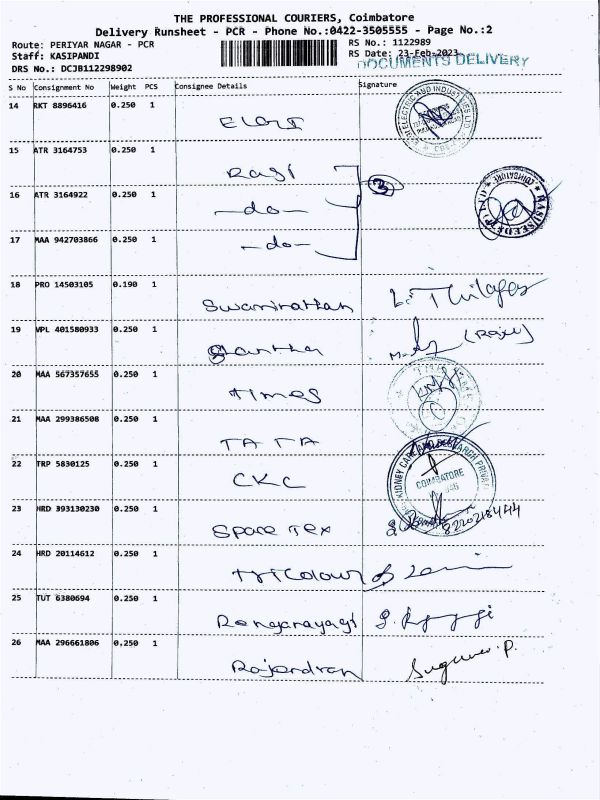 THE PROFESSIONAL COURIERS, Coimbatore
Delivery Runsheet - PCR - Phone No.:0422-3505555 - Page No.:2
Route: PERIYAR NAGAR - PCR
RS No.: 1122989
Staff: KASIPANDI
RS Date: 23-Feb-2023
DOCUMENTS DELIVERY
DRS No.: DCJB112298902
S No Consignment No Weight PCS Consignee Details Signature
14 RKT 8896416 0.250 1
ELGI
15 ATR 3164753 0.250 1
Ragi
16 ATR 3164922 0.250 1
-do-
3
COIMBATORE
17 MAA 942703866 0.250 1
-do-
18 PRO 14503105 0.190 1
Swaminathan
L. Thilaga
19 VPL 401580933 0.250 1
(Raju)
20 MAA 567357655 0.250 1
Times
21 MAA 299386508 0.250 1
TATA
22 TRP 5830125 0.250 1
CKC
KIDNEY CARE AND RESEARCH PRIVATE
COIMBATORE
23 HRD 393130230 0.250 1
Space Tex
24 HRD 20114612 0.250 1
Tricolour
25 TUT 6380694 0.250 1
26 MAA 296661806 0.250 1
Rajendran